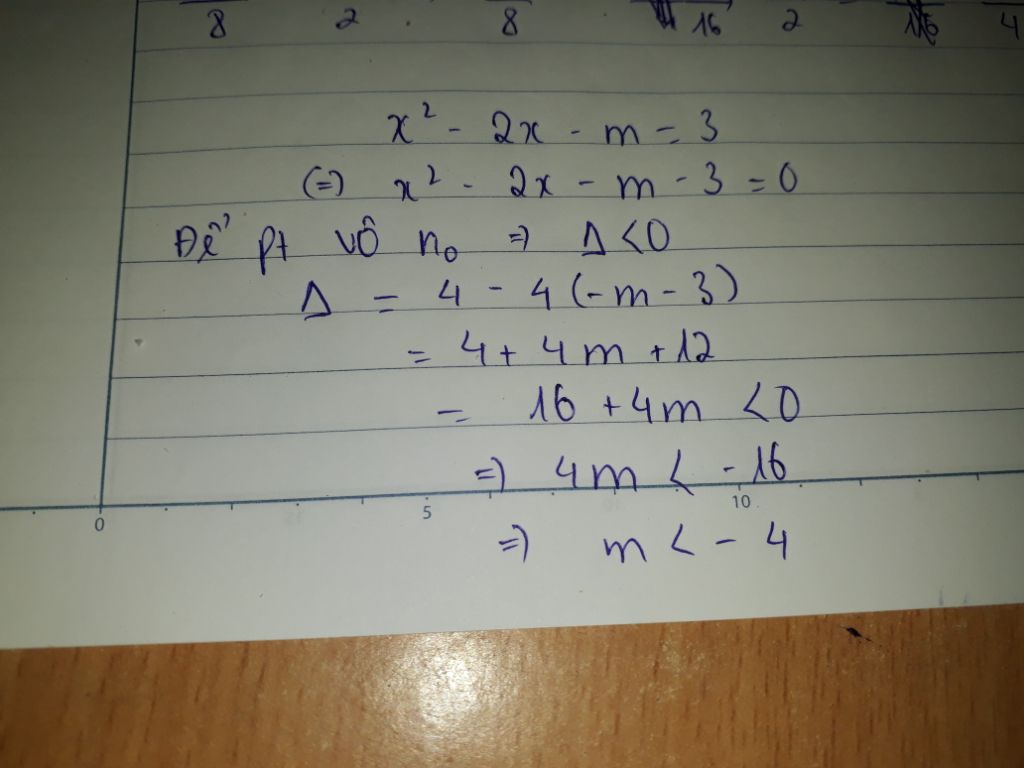 8 2 . 8 16 2 16 4
x² - 2x - m = 3
(=) x² - 2x - m - 3 = 0
Để pt vô n₀ => Δ < 0
Δ = 4 - 4 (-m - 3)
= 4 + 4m + 12
= 16 + 4m < 0
=> 4m < - 16
0 5 10
=> m < - 4